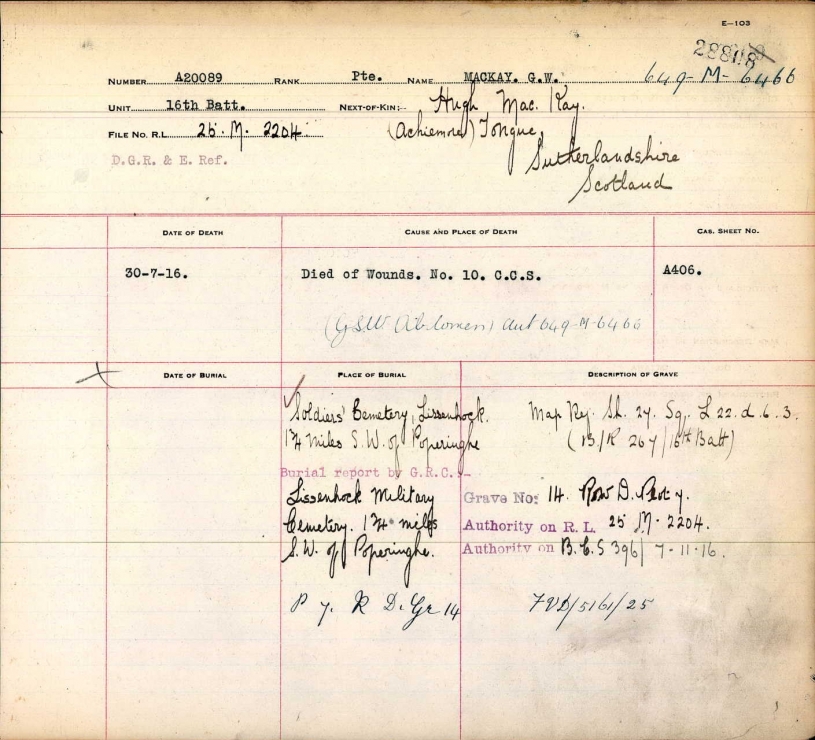 E—103
28808
649-M-6466
NUMBER A20089 RANK Pte. NAME MACKAY. G.W.
UNIT 16th Batt. NEXT-OF-KIN:- Hugh Mac. Kay.
FILE NO. R.L. 25. M. 2204. (Achiemore) Tongue,
D.G.R. & E. Ref. Sutherlandshire
Scotland
DATE OF DEATH CAUSE AND PLACE OF DEATH CAS. SHEET NO.
30-7-16. Died of Wounds. No. 10. C.C.S. A406.
(GSW Abdomen) Aut 649-M-6466
DATE OF BURIAL PLACE OF BURIAL DESCRIPTION OF GRAVE
Soldiers' Cemetery, Lissenhock. Map Ref. Sh. 27. Sq. L 22. d. 6. 3.
1¾ miles S.W. of Poperinghe (13/R 267/16th Batt)
Burial report by G.R.C.:-
Lissenhock Military Grave No: 14. Row D. Plot 7.
Cemetery. 1¾ miles Authority on R. L. 25 M. 2204.
S.W. of Poperinghe. Authority on B.C.S 396/ 7-11-16.
P 7. R D. Gr 14 7VD/5161/25